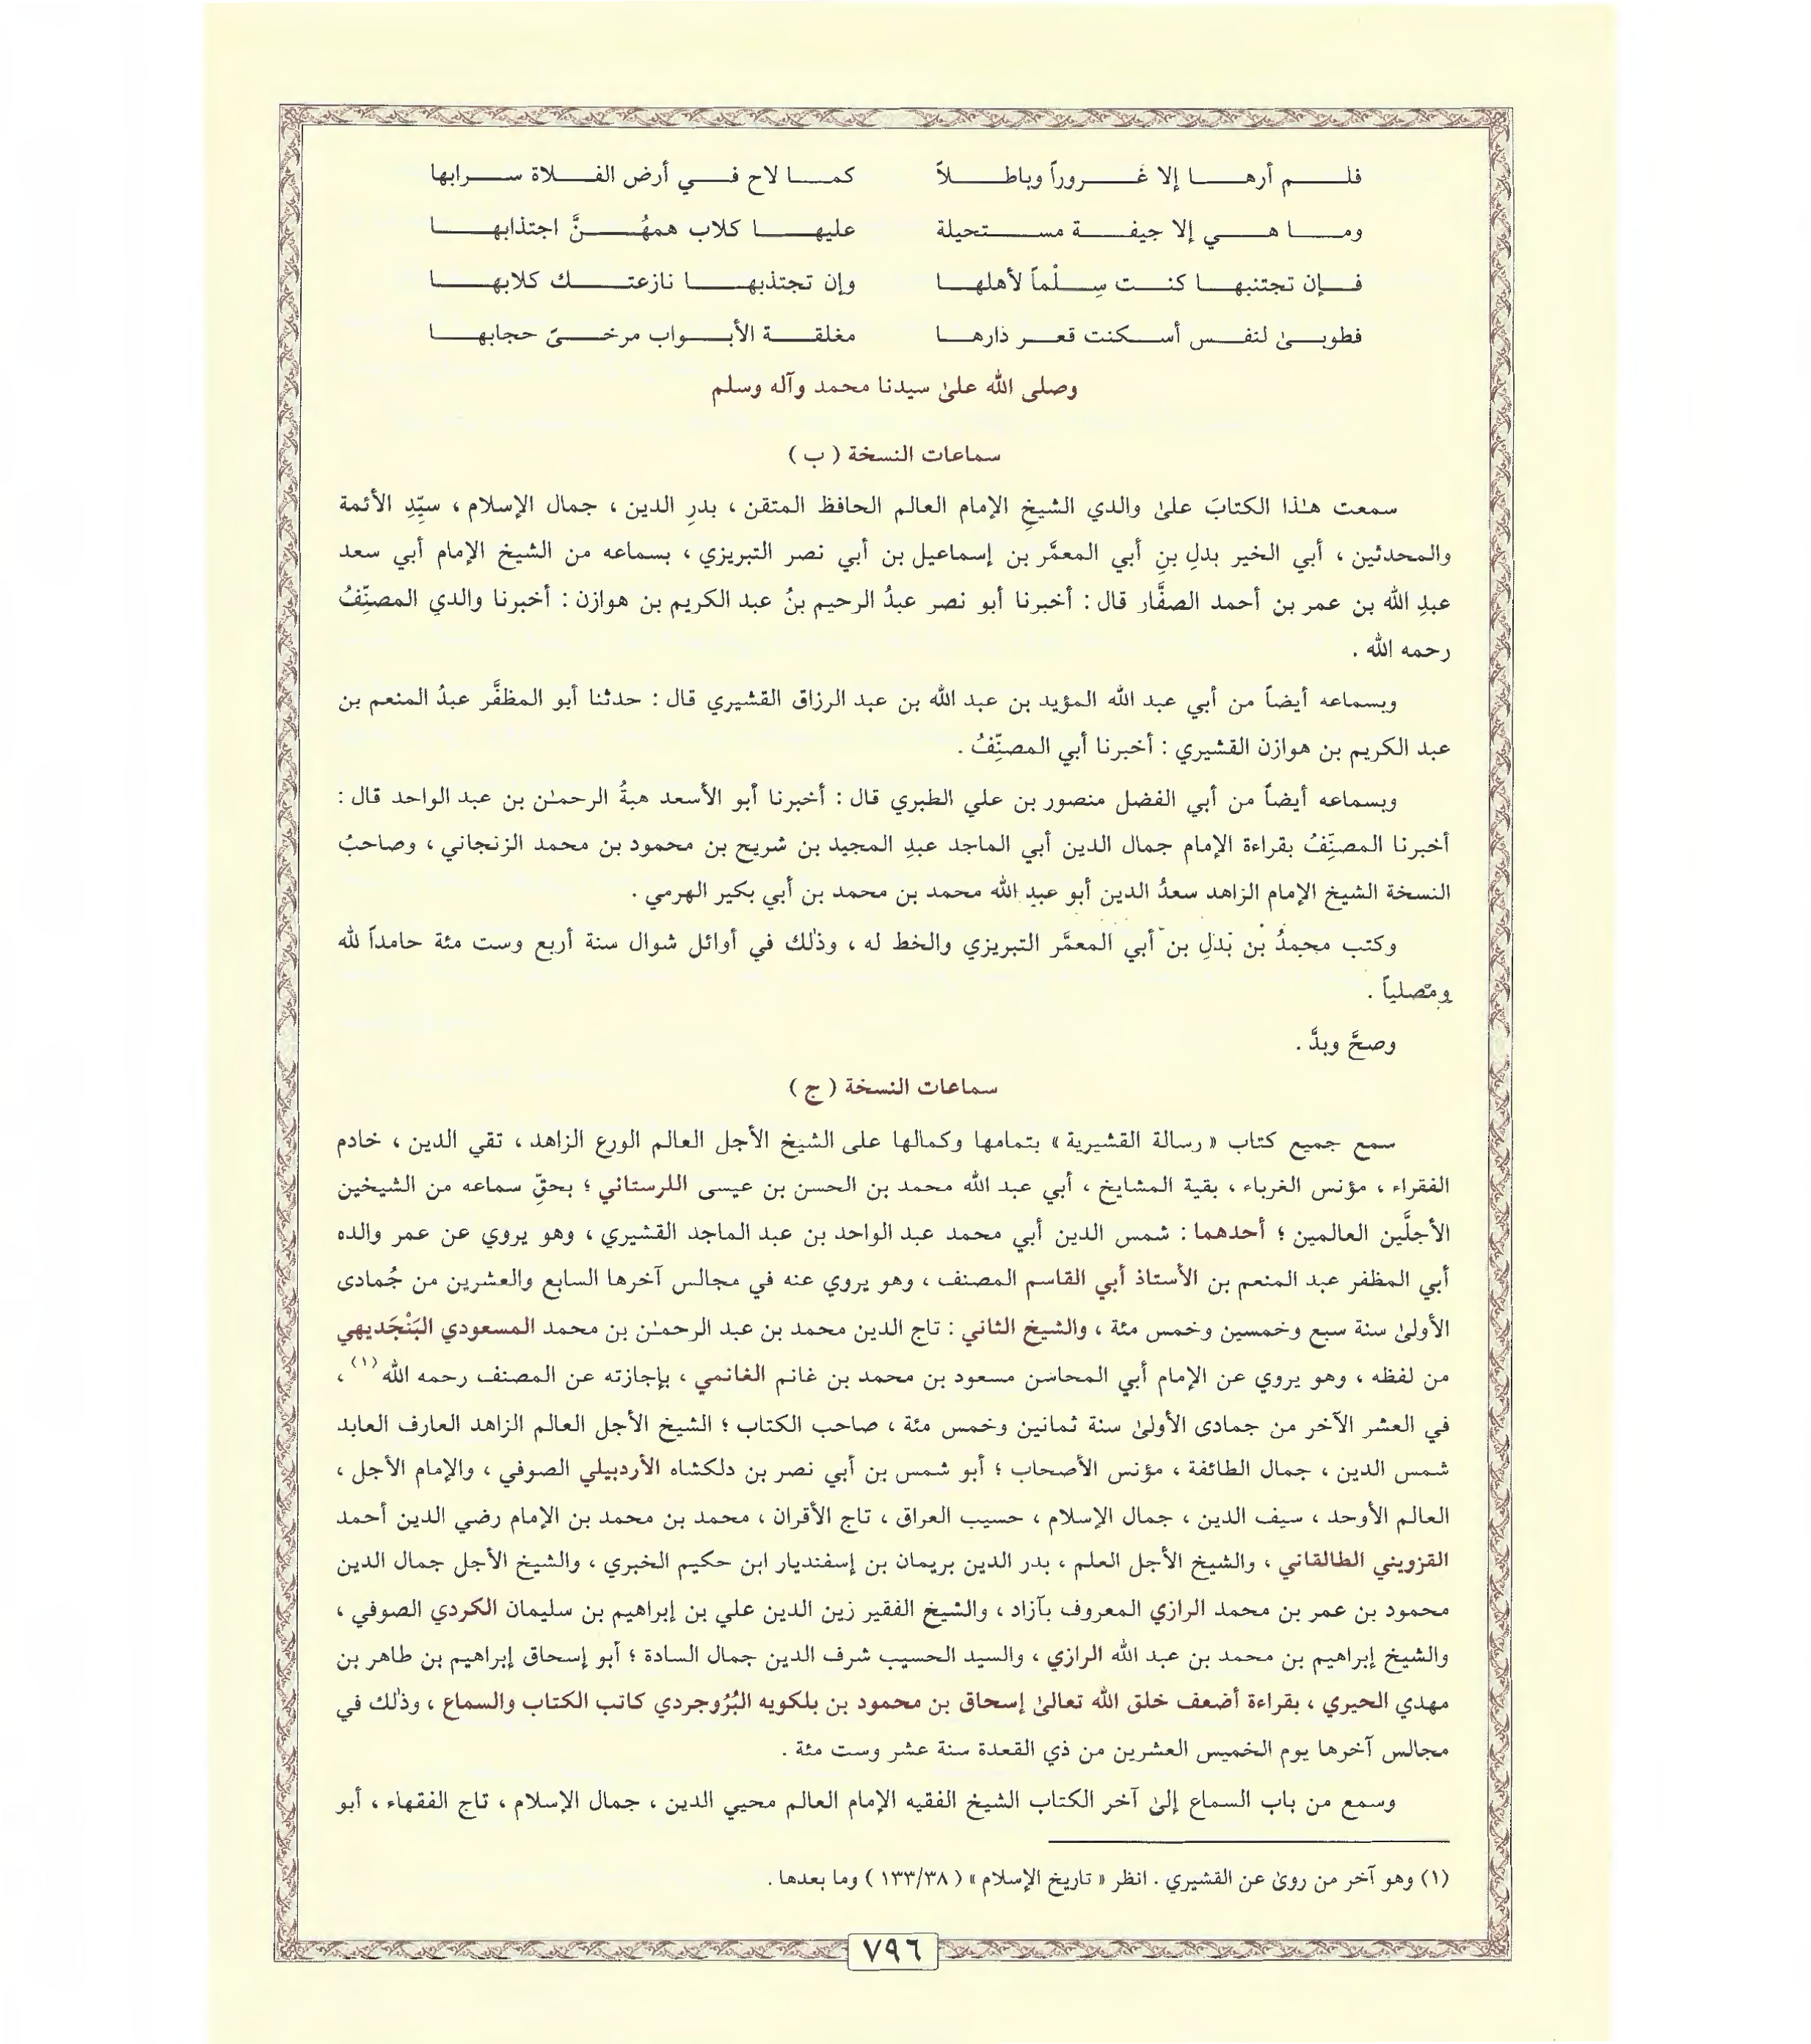 فلم أرها إلا غَروراً وباطلاً كما لاح في أرض الفلاة سرابها
وما هي إلا جيفة مستحيلة عليها كلاب همهُنَّ اجتذابها
فإن تجتنبها كنت سِلْماً لأهلها وإن تجتذبها نازعتك كلابها
فطوبىٰ لنفس أسكنت قعر دارها مغلقة الأبواب مرخىً حجابها
وصلى الله علىٰ سيدنا محمد وآله وسلم
سماعات النسخة ( ب )
سمعت هـٰذا الكتابَ علىٰ والدي الشيخِ الإمام العالم الحافظ المتقن ، بدرِ الدين ، جمال الإسلام ، سيِّدِ الأئمة
والمحدثين ، أبي الخير بدلِ بنِ أبي المعمَّر بن إسماعيل بن أبي نصر التبريزي ، بسماعه من الشيخ الإمام أبي سعد
عبدِ الله بن عمر بن أحمد الصفَّار قال : أخبرنا أبو نصر عبدُ الرحيم بنُ عبد الكريم بن هوازن : أخبرنا والدي المصنِّفُ
رحمه الله .
وبسماعه أيضاً من أبي عبد الله المؤيد بن عبد الله بن عبد الرزاق القشيري قال : حدثنا أبو المظفَّر عبدُ المنعم بن
عبد الكريم بن هوازن القشيري : أخبرنا أبي المصنِّفُ .
وبسماعه أيضاً من أبي الفضل منصور بن علي الطبري قال : أخبرنا أبو الأسعد هبةُ الرحمـٰن بن عبد الواحد قال :
أخبرنا المصنِّفُ بقراءة الإمام جمال الدين أبي الماجد عبدِ المجيد بن شريح بن محمود بن محمد الزنجاني ، وصاحبُ
النسخة الشيخ الإمام الزاهد سعدُ الدين أبو عبد الله محمد بن محمد بن أبي بكير الهرمي .
وكتب محمدُ بْن بَدَلِ بن أبي المعمَّر التبريزي والخط له ، وذٰلك في أوائل شوال سنة أربع وست مئة حامداً لله
ومصلياً .
وصحَّ وبدَّ .
سماعات النسخة ( ج )
سمع جميع كتاب « رسالة القشيرية » بتمامها وكمالها على الشيخ الأجل العالم الورع الزاهد ، تقي الدين ، خادم
الفقراء ، مؤنس الغرباء ، بقية المشايخ ، أبي عبد الله محمد بن الحسن بن عيسى اللرستاني ؛ بحقِّ سماعه من الشيخين
الأجلَّين العالمين ؛ أحدهما : شمس الدين أبي محمد عبد الواحد بن عبد الماجد القشيري ، وهو يروي عن عمر والده
أبي المظفر عبد المنعم بن الأستاذ أبي القاسم المصنف ، وهو يروي عنه في مجالس آخرها السابع والعشرين من جُمادى
الأولىٰ سنة سبع وخمسين وخمس مئة ، والشيخ الثاني : تاج الدين محمد بن عبد الرحمـٰن بن محمد المسعودي البَنْجَديهي
من لفظه ، وهو يروي عن الإمام أبي المحاسن مسعود بن محمد بن غانم الغانمي ، بإجازته عن المصنف رحمه الله(١) ،
في العشر الآخر من جمادى الأولىٰ سنة ثمانين وخمس مئة ، صاحب الكتاب ؛ الشيخ الأجل العالم الزاهد العارف العابد
شمس الدين ، جمال الطائفة ، مؤنس الأصحاب ؛ أبو شمس بن أبي نصر بن دلكشاه الأردبيلي الصوفي ، والإمام الأجل ،
العالم الأوحد ، سيف الدين ، جمال الإسلام ، حسيب العراق ، تاج الأقران ، محمد بن محمد بن الإمام رضي الدين أحمد
القزويني الطالقاني ، والشيخ الأجل العلم ، بدر الدين بريمان بن إسفنديار ابن حكيم الخبري ، والشيخ الأجل جمال الدين
محمود بن عمر بن محمد الرازي المعروف بآزاد ، والشيخ الفقير زين الدين علي بن إبراهيم بن سليمان الكردي الصوفي ،
والشيخ إبراهيم بن محمد بن عبد الله الرازي ، والسيد الحسيب شرف الدين جمال السادة ؛ أبو إسحاق إبراهيم بن طاهر بن
مهدي الحيري ، بقراءة أضعف خلق الله تعالىٰ إسحاق بن محمود بن بلكويه البُرُوجردي كاتب الكتاب والسماع ، وذٰلك في
مجالس آخرها يوم الخميس العشرين من ذي القعدة سنة عشر وست مئة .
وسمع من باب السماع إلىٰ آخر الكتاب الشيخ الفقيه الإمام العالم محيي الدين ، جمال الإسلام ، تاج الفقهاء ، أبو
(١) وهو آخر من روىٰ عن القشيري . انظر « تاريخ الإسلام » ( ١٣٣/٣٨ ) وما بعدها .
٧٩٦